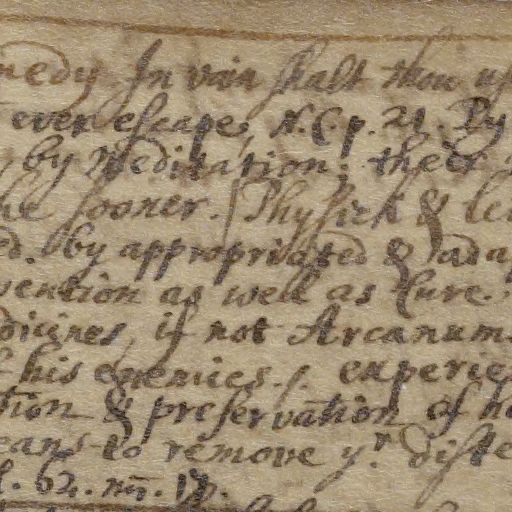 medy In vain shalt thou us
even escape, N.C.p. 21. By
, by Meditation, their
he sooner. Physick & le
ed. by appropriated & adap
vention as well as Cure.
dicines, if not Arcanum
f his enemies. experie
tion & preservation of h
eans to remove yr. diste
l. 62. m. 17.